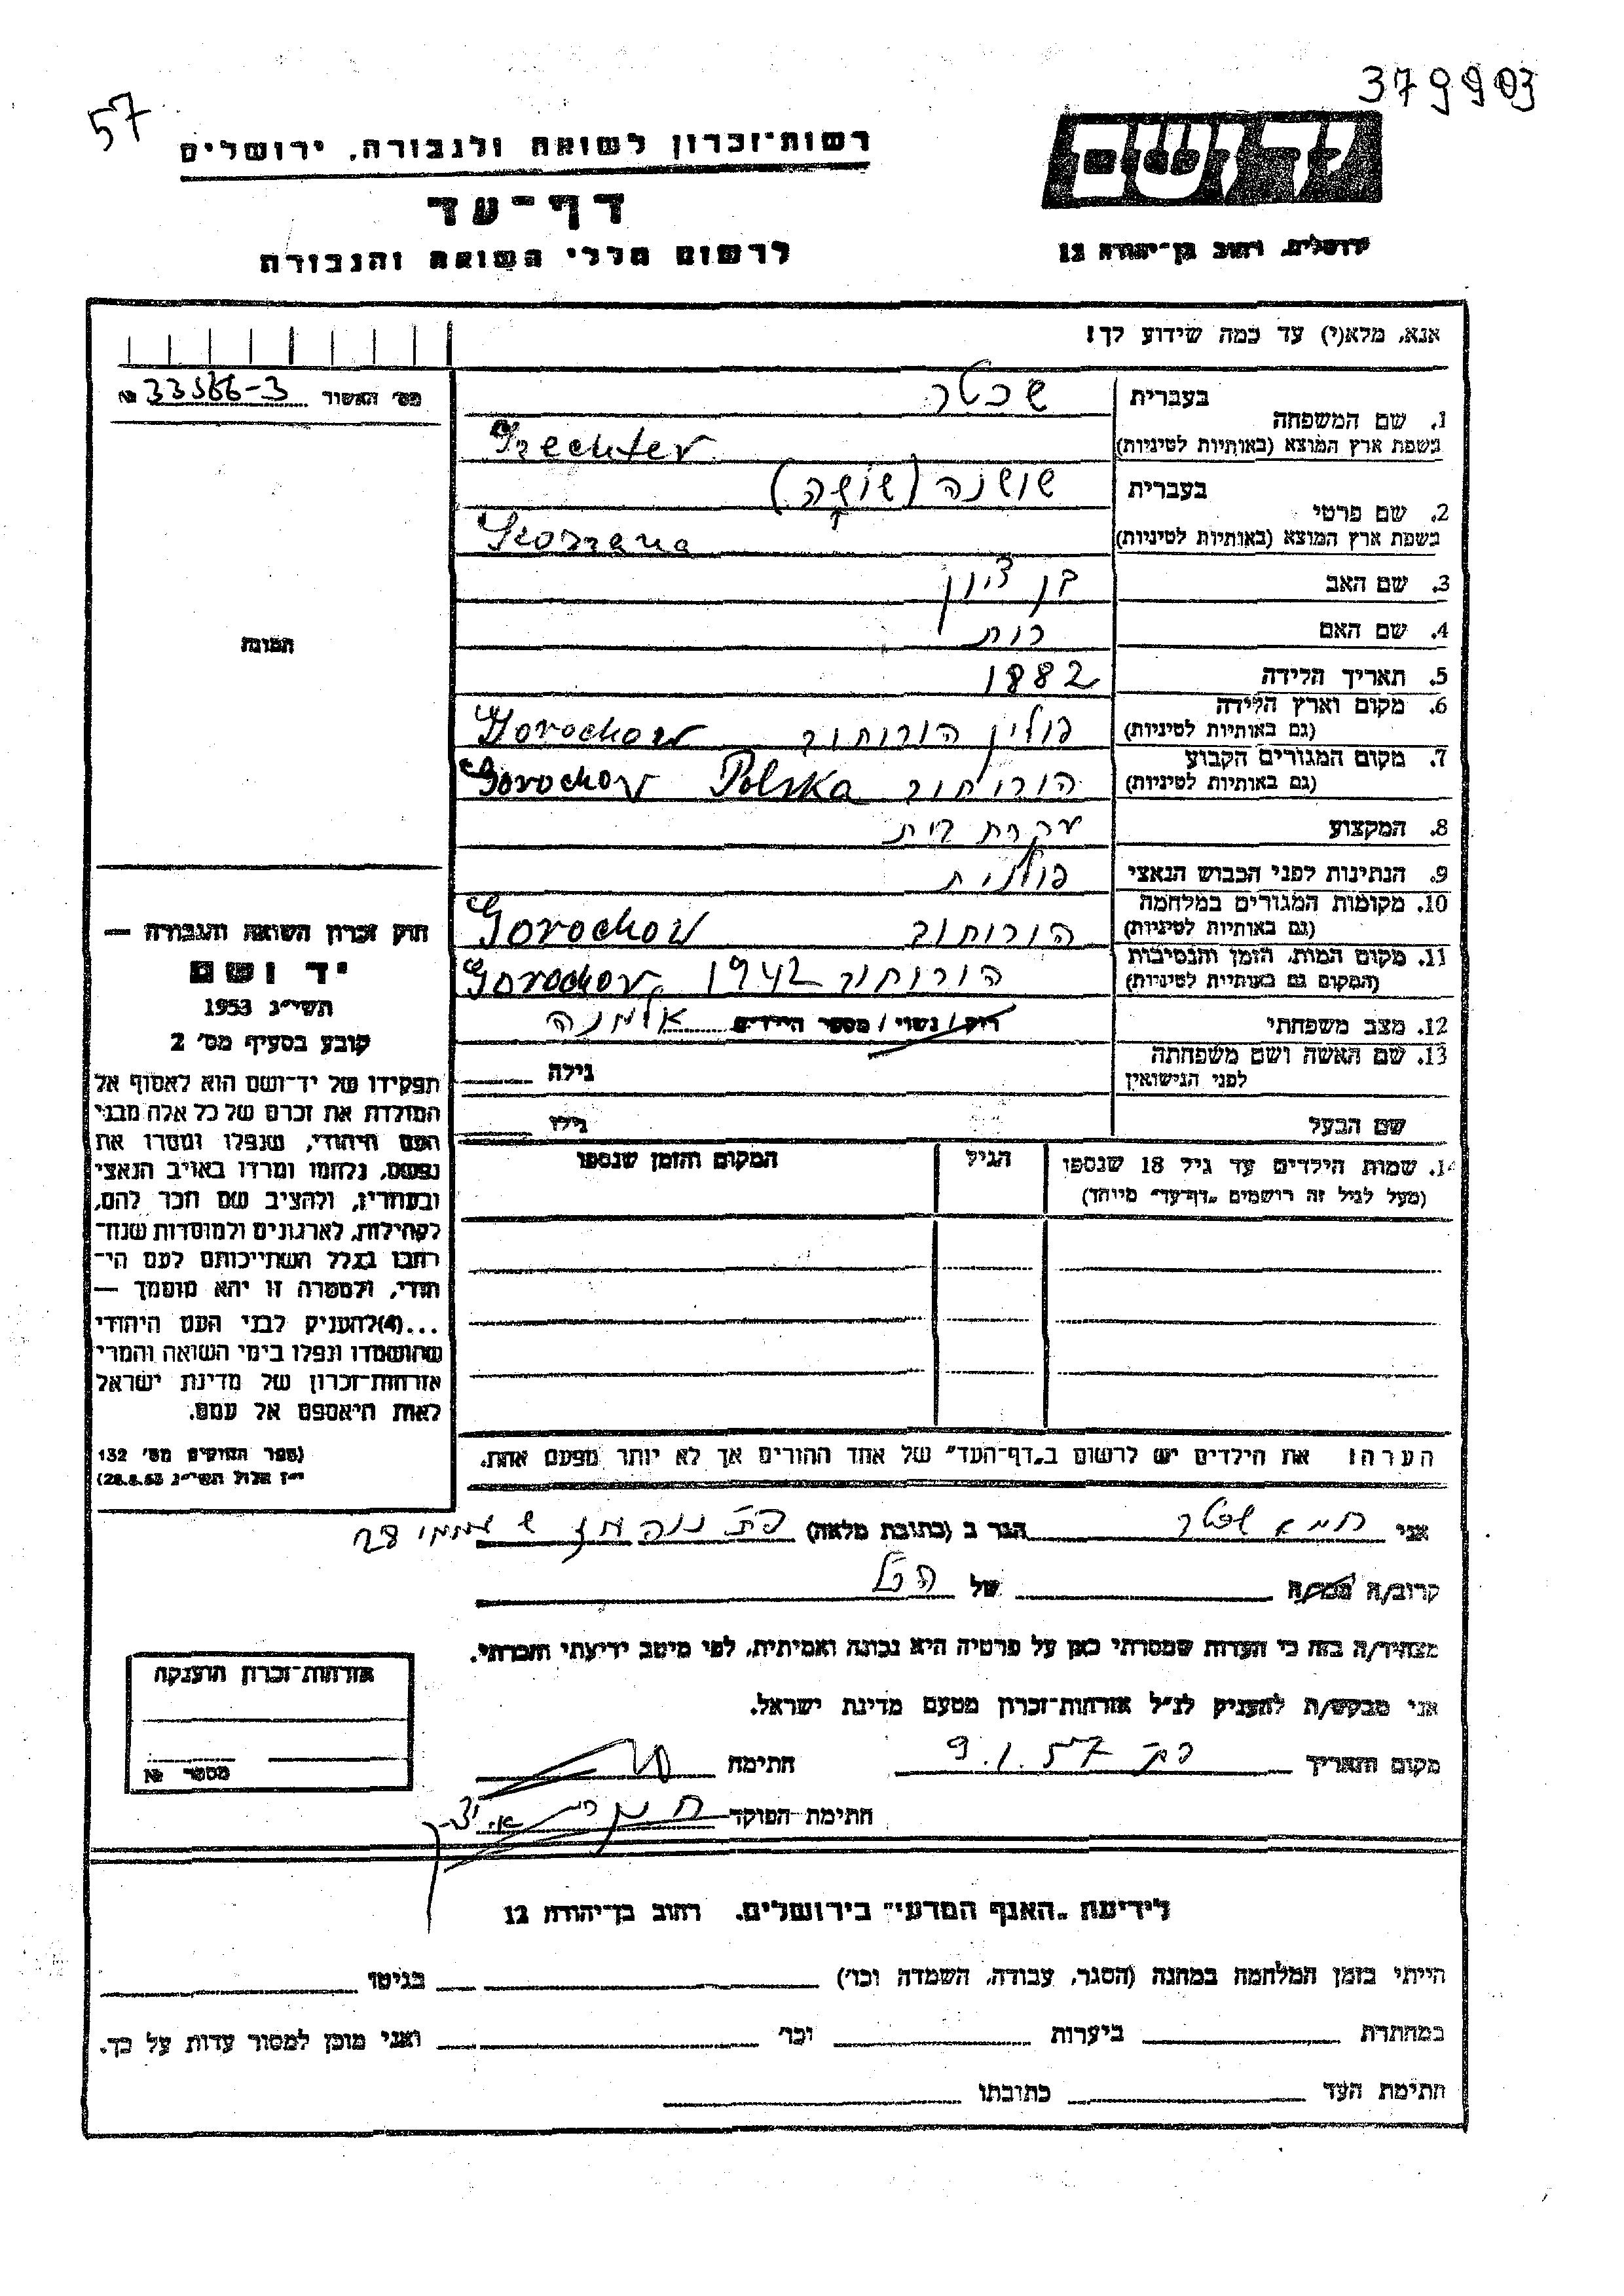 379903
57
יד ושם
רשות־זכרון לשואה ולגבורה, ירושלים
דף־עד
לרשום חללי השואה והגבורה
ירושלים, רחוב בן־יהודה 12
אנא, מלא(י) עד כמה שידוע לך!
מס׳ האשור 33566-3 №
1. שם המשפחה
בעברית שכטר
בשפת ארץ המוצא (באותיות לטיניות) Szechter
2. שם פרטי
בעברית שושנה (שושה)
בשפת ארץ המוצא (באותיות לטיניות) Szoszana
3. שם האב בן ציון
4. שם האם רות
5. תאריך הלידה 1882
6. מקום וארץ הלידה
(גם באותיות לטיניות) פולין הורוחוב Horochow
7. מקום המגורים הקבוע
(גם באותיות לטיניות) הורוחוב Polska Gorochov
8. המקצוע עקרת בית
9. הנתינות לפני הכבוש הנאצי פולנית
10. מקומות המגורים במלחמה
(גם באותיות לטיניות) הורוחוב Gorochov
11. מקום המות, הזמן והנסיבות
(המקום גם באותיות לטיניות) הורוחוב 1942 Gorochov
12. מצב משפחתי רווק/נשוי/מספר הילדים אלמנה
13. שם האשה ושם משפחתה
לפני הנישואין גילה
שם הבעל גילו
14. שמות הילדים עד גיל 18 שנספו
(מעל לגיל זה רושמים „דף־עד״ מיוחד)
הגיל
המקום והזמן שנספו
הערה! את הילדים יש לרשום ב„דף־העד״ של אחד ההורים אך לא יותר מפעם אחת.
התמונה
חוק זכרון השואה והגבורה —
יד ושם
תשי״ג 1953
קובע בסעיף מס׳ 2
תפקידו של יד־ושם הוא לאסוף אל
המולדת את זכרם של כל אלה מבני
העם היהודי, שנפלו ומסרו את
נפשם, נלחמו ומרדו באויב הנאצי
ובעוזריו, ולהציב שם וזכר להם,
לקהילות, לארגונים ולמוסדות שנח־
רבו בגלל השתייכותם לעם הי־
הודי, ולמטרה זו יהא מוסמך —
...(4)להעניק לבני העם היהודי
שהושמדו ונפלו בימי השואה והמרי
אזרחות־זכרון של מדינת ישראל
לאות היאספם אל עמם.
(ספר החוקים מס׳ 132
י״ז אלול תשי״ג 28.8.53)
אני שכטר הגר ב (כתובת מלאה)
קרוב/ה מכר/ה של הנ״ל
מצהיר/ה בזה כי העדות שמסרתי כאן על פרטיה היא נכונה ואמיתית, לפי מיטב ידיעתי והכרתי.
אני מבקש/ת להעניק לנ״ל אזרחות־זכרון מטעם מדינת ישראל.
מקום ותאריך 9.1.57 חתימה
חתימת הפוקד
אזרחות־זכרון הוענקה
מספר №
לידיעת „האגף המדעי״ בירושלים, רחוב בן־יהודה 12
הייתי בזמן המלחמה במחנה (הסגר, עבודה, השמדה וכו׳) בגיטו
במחתרת ביערות וכו׳ ואני מוכן למסור עדות על כך.
חתימת העד כתובתו